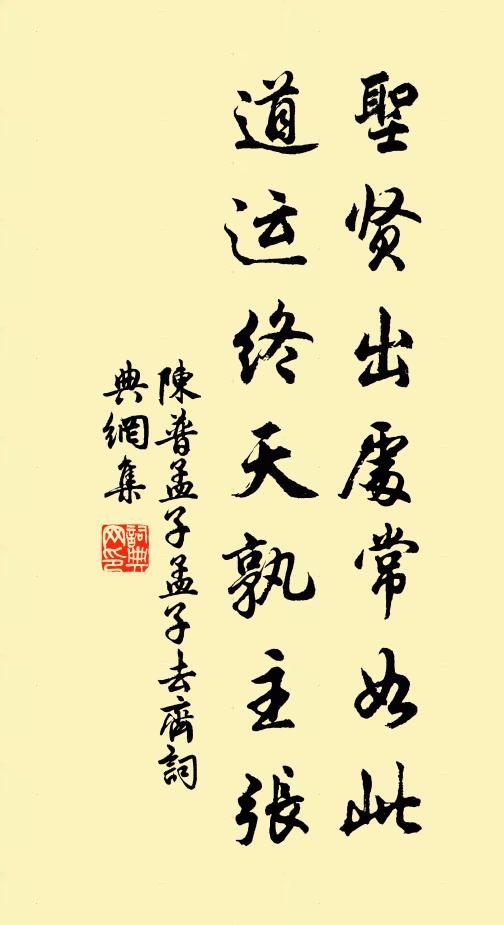 聖贤出處常如此
道运终天孰主张
陳普孟子孟子去齊詞
典網集
詞典网印